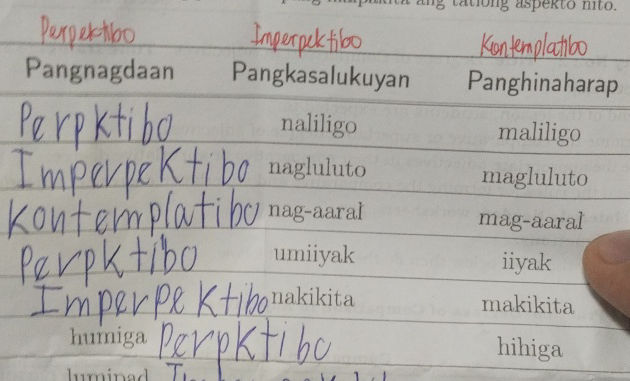 ang tatlong aspekto nito.
Perpektibo Imperpektibo Kontemplatibo
Pangnagdaan Pangkasalukuyan Panghinaharap
Perpktibo naliligo maliligo
Imperpektibo nagluluto magluluto
Kontemplatibo nag-aaral mag-aaral
Perpktibo umiiyak iiyak
Imperpektibo nakikita makikita
humiga Perpktibo hihiga
lumipad